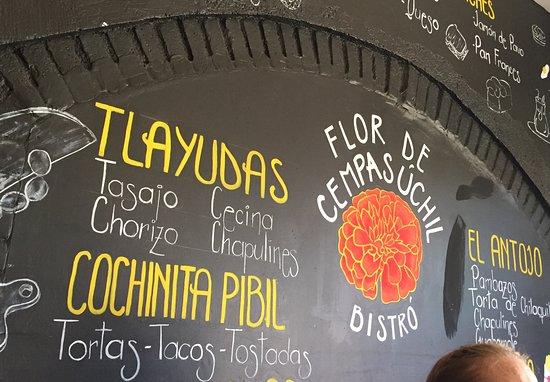 Queso
Jamón de Pavo
Pan Francés
TLAYUDAS
Tasajo Cecina
Chorizo Chapulines
COCHINITA PIBIL
Tortas-Tacos-Tostadas
FLOR DE
CEMPASÚCHIL
BISTRÓ
EL ANTOJO
Pambazos
Torta de
Chapulines